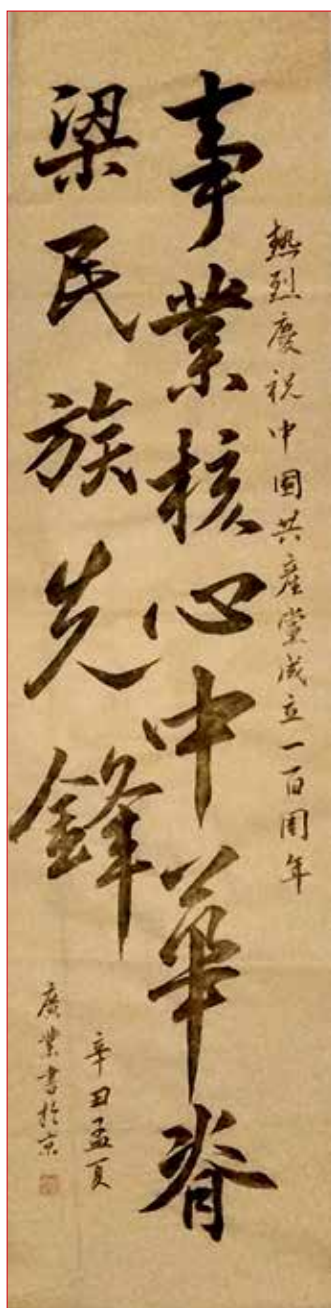 熱烈慶祝中國共產黨成立一百周年
事業核心中華脊
梁民族先鋒
辛丑孟夏
廣業書於京